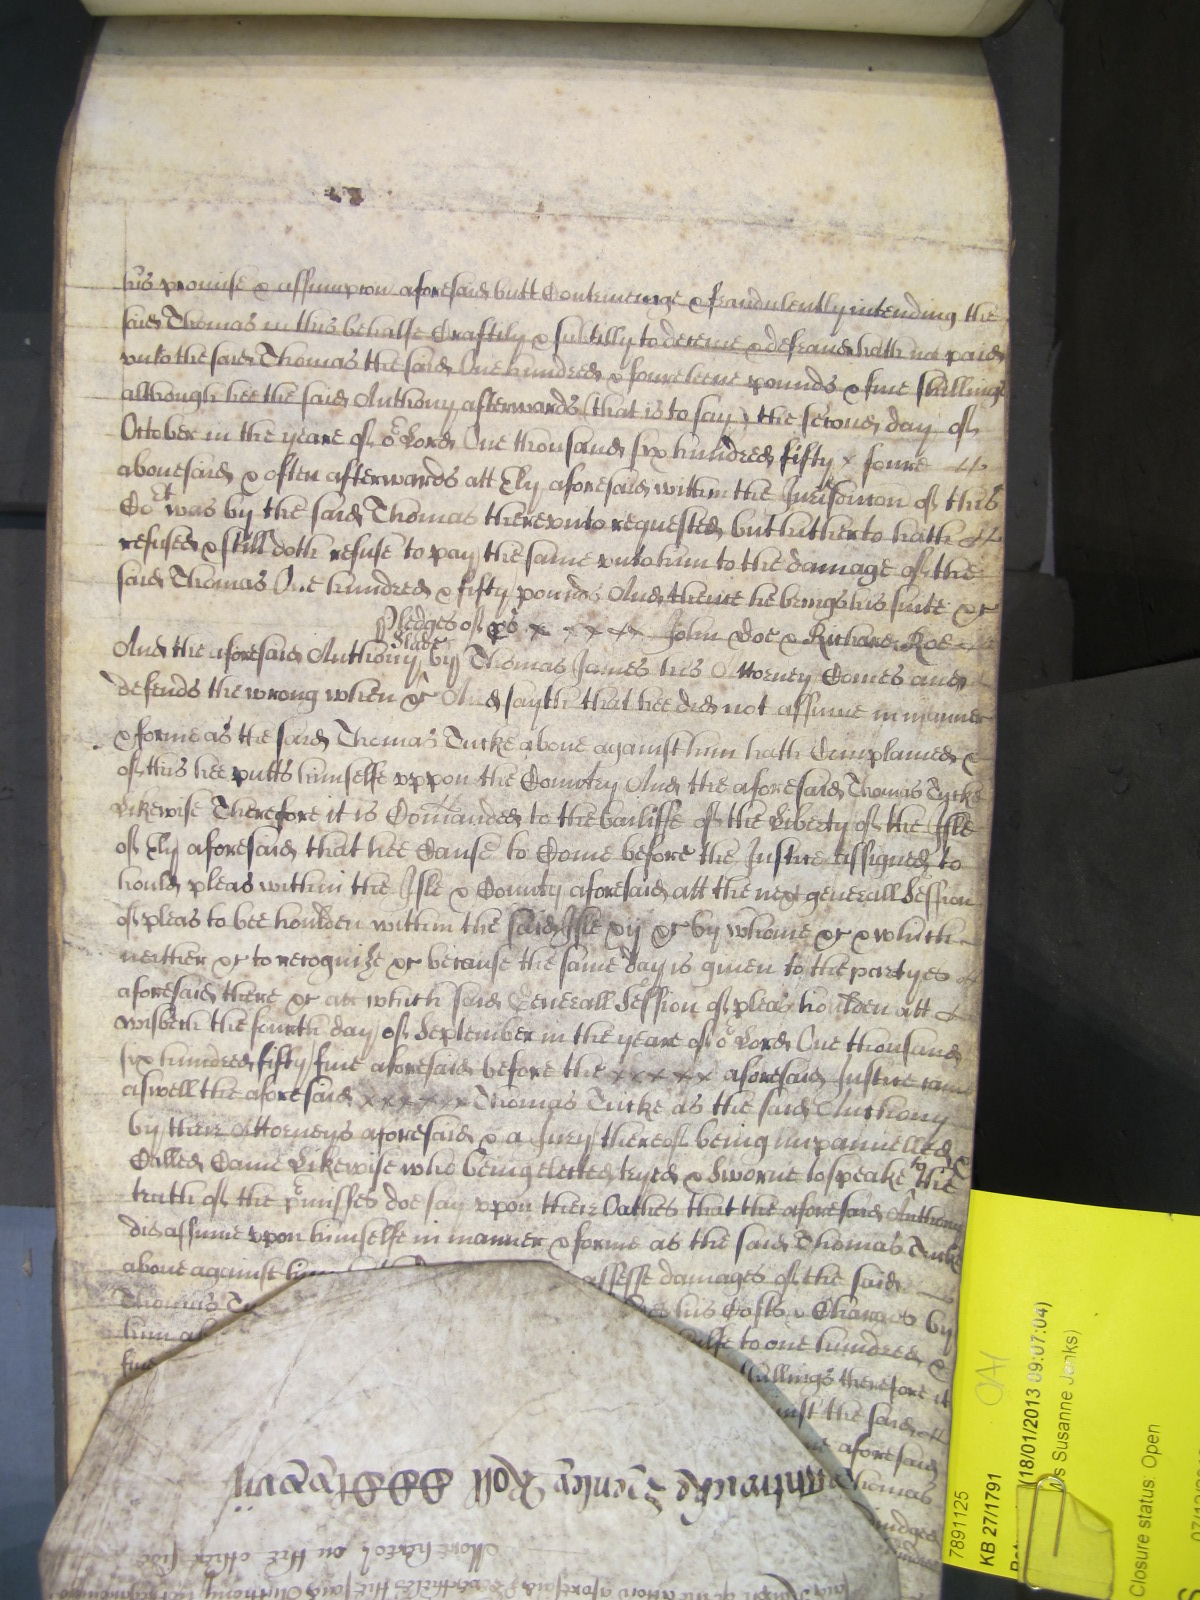 his promise & assumpcon aforesaid butt Contriveinge & fraudulently intending the
said Thomas in this behalfe Craftily & subtilly to deceive & defraud hath not paid
unto the said Thomas the said One hundred & fourteene pounds & five shillings
although hee the said Anthony afterwards (that is to say) the second day of
October in the yeare of or Lord One thousand six hundred fifty & foure
abovesaid & often afterwards att Ely aforesaid within the Jurisdiction of this
Cort was by the said Thomas thereunto requested but hitherto hath
refused & still doth refuse to pay the same unto him to the damage of the
said Thomas One hundred & fifty pounds And thence he brings his suite &c
Pledges of x x x x x John Doe & Richard Roe
And the aforesaid Anthony Slade by Thomas James his Attorney Comes and
defends the wrong when &c And sayth that hee did not assume in manner
& forme as the said Thomas Turke above against him hath Complained &
of this hee putts himselfe uppon the Country And the aforesaid Thomas Turke
Likewise Therefore it is Comanded to the bailiffe of the Liberty of the Isle
of Ely aforesaid that hee Cause to Come before the Justice assigned to
hould pleas within the Isle & County aforesaid att the next generall Session
of pleas to bee houlden within the said Isle xij &c by whome &c & which
neither &c to recognize &c because the same day is given to the partyes
aforesaid there &c att which said Generall Session of pleas houlden att
wisbech the fourth day of September in the yeare of or Lord One thousand
six hundred fifty five aforesaid before the x x x x x aforesaid Justice came
aswell the aforesaid x x x x x x Thomas Turke as the said Anthony
by their Attorneys aforesaid & a Jury thereof being impannelled &
Called Came Likewise who being elected tryed & Sworne to speake the
truth of the pmisses doe say upon their Oathes that the aforesaid Anthony
did assume upon himselfe in manner & forme as the said Thomas Turke
above against him assesse damages of the said
Thomas his Costs & Charges by
him to one hundred &
five shillings therefore it
against the said
aforesaid
Thomas
Roll
More hereof on the other side
7891125
KB 27/1791
(18/01/2013 09:07:04)
s Susanne Jenks)
Closure status: Open